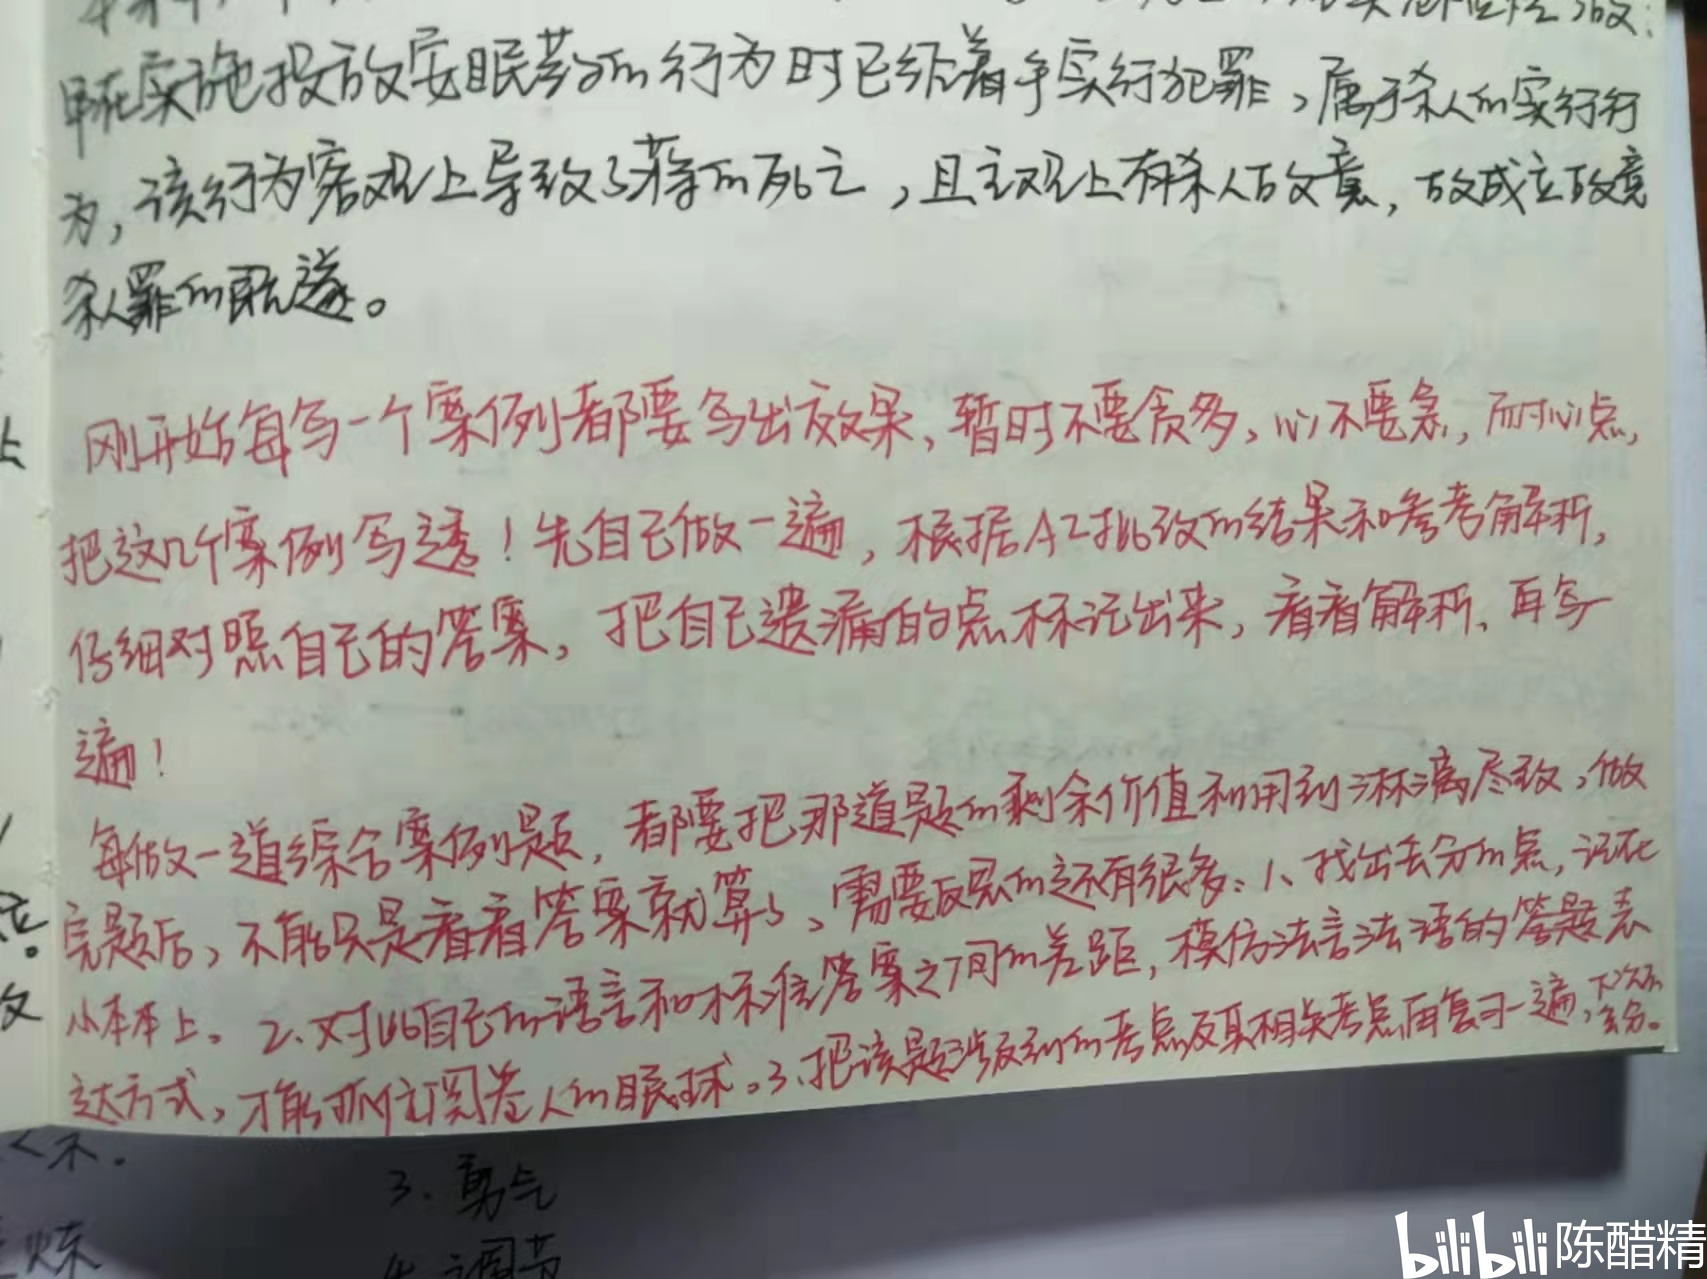 甲在实施投放安眠药的行为时已经着手实行犯罪，属于杀人的实行行
为，该行为客观上导致了蒋的死亡，且主观上有杀人故意，故成立故意
杀人罪的既遂。
刚开始每写一个案例都要写出效果，暂时不要贪多，心不要急，耐心点，
把这几个案例写透！先自己做一遍，根据AI批改的结果和参考解析，
仔细对照自己的答案，把自己遗漏的点标记出来，看看解析、再写一
遍！
每做一道综合案例题，都要把那道题的剩余价值利用到淋漓尽致，做
完题后，不能只是看看答案就算了，需要反思的还有很多：1、找出丢分的点，记在
小本本上。2、对比自己的语言和标准答案之间的差距，模仿法言法语的答题表
达方式，才能抓住阅卷人的眼球。3、把该题涉及到的考点及其相关考点再复习一遍，下次不
丢分。
3. 勇气
4. 调节
炼
bilibili 陈醋精